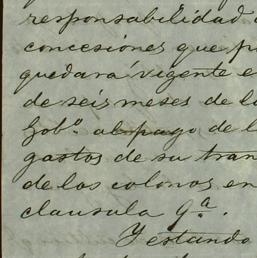 responsabilidad
concesiones que p
quedará vigente e
de seis meses de l
Gob.º al pago de l
gastos de su tran
de los colonos en
clausula 9.ª.
Y estando